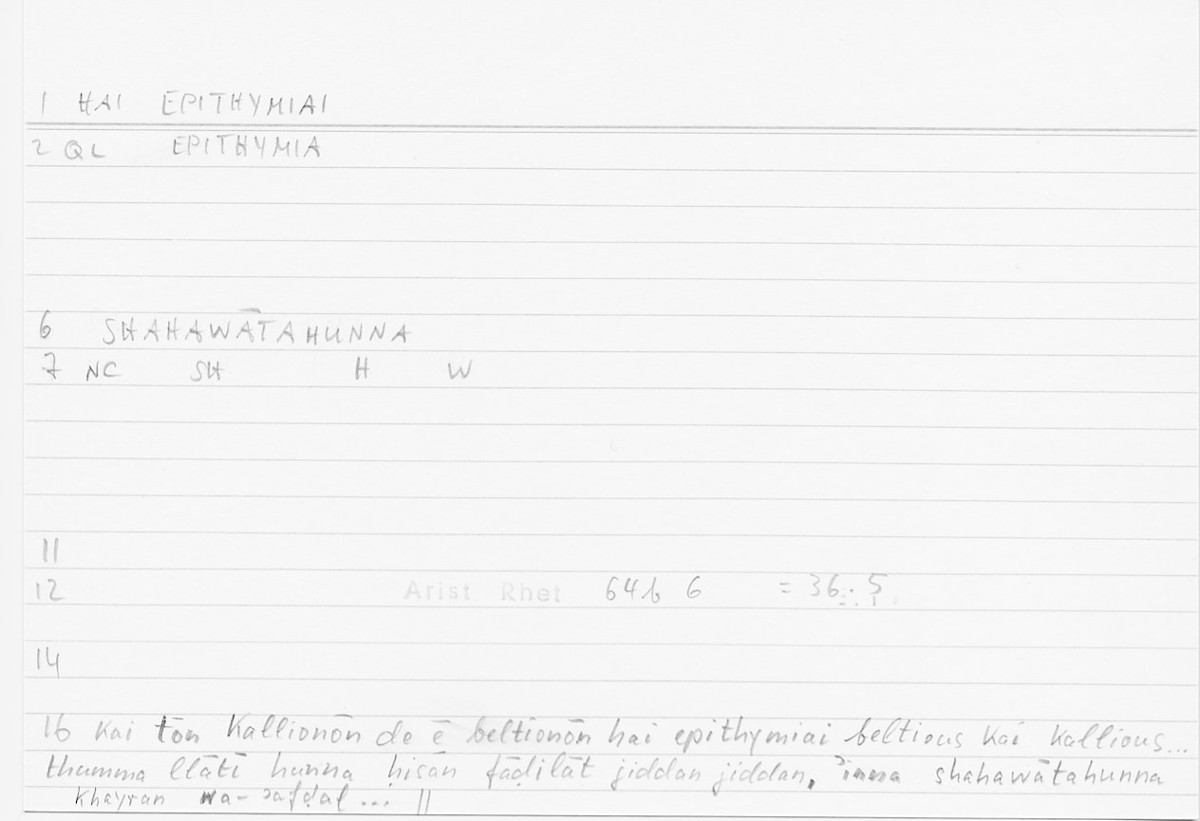 1 HAI EPITHYMIAI
2 QL EPITHYMIA
6 SHAHAWĀTAHUNNA
7 NC SH H W
11
12 Arist Rhet 64b 6 = 36:5
14
16 kai tōn kallionōn de ē beltionōn hai epithymiai beltious kai kallious...
thumma llātī hunna ḥisān fāḍilāt jiddan jiddan, ʾinna shahawātahunna
khayran wa-ʾafḍal ... ||